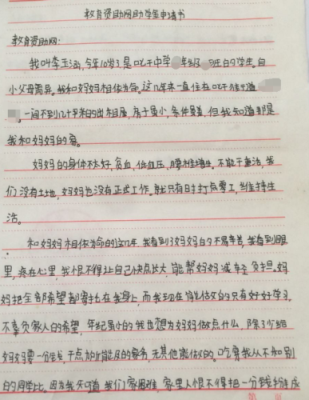 教育资助网助学金申请书
教育资助网:
我叫李玉洁,今年10岁,是吃干中学 年级 班的学生,自
小父母离异,我和妈妈相依为命。这几年来一直住在
一间不到几十平米的出租屋,房子虽小,条件虽差,但我知道那是
我和妈妈的家。
妈妈的身体不太好,贫血,低血压,腰椎增生,不能干重活,我
们没有土地,妈妈也没有正式工作,就只有日打点零工,维持生
活。
和妈妈相依为命的这几年,我看到了妈妈的不易辛苦,我看到眼
里,疼在心里,我恨不得让自己快点长大,能帮妈妈减轻负担。妈
妈把全部希望都寄托在我身上,而我现在能做的只有好好学习,
不辜负家人的希望,年纪虽小的我也想为妈妈做点什么,除了少给
妈妈要一份钱,干点知力能及的家务,无其他能做的。吃穿我从不和别
的同学比,因为我知道我们家困难,家里人恨不得把一分钱掰成